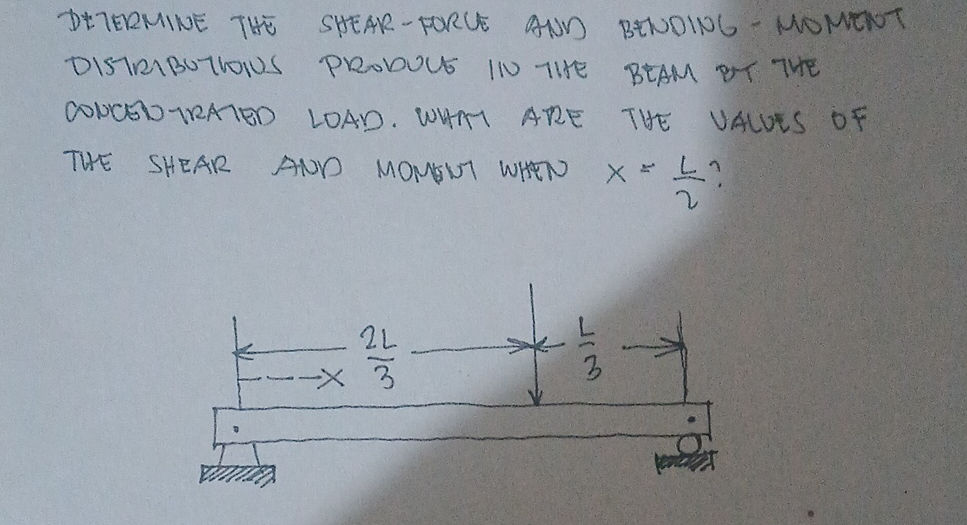 DETERMINE THE SHEAR-FORCE AND BENDING-MOMENT
DISTRIBUTIONS PRODUCE IN THE BEAM BY THE
CONCENTRATED LOAD. WHAT ARE THE VALUES OF
THE SHEAR AND MOMENT WHEN X = L/2?
2L/3 L/3
X